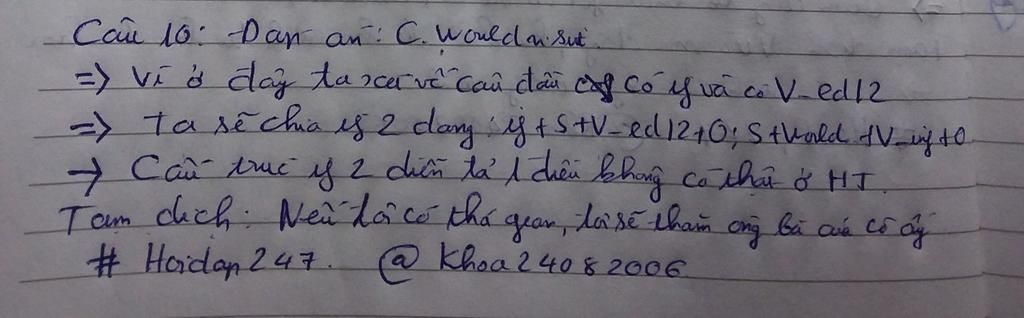 Câu 10: Đáp án: C. Would visit
=> Vì ở đây ta xét về câu đầu có if và có V_ed/2
=> Ta sẽ chia if 2 dạng: if + S + V_ed/2 + O; S + Would + V_inf + O
→ Cấu trúc if 2 diễn tả 1 điều không có thật ở HT.
Tạm dịch: Nếu tôi có thời gian, tôi sẽ thăm ông bà của cô ấy
# Hoidap247. @ Khoa24082006